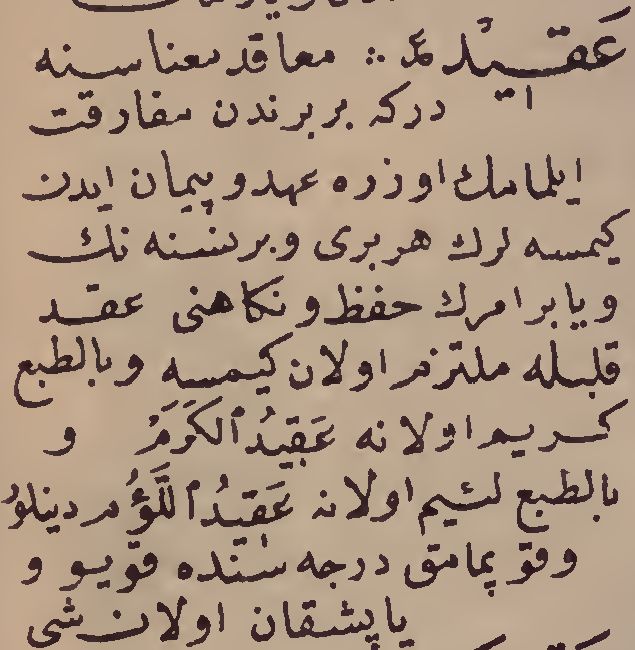 عَقِيدْ ع ∴ معاقد معناسنه
دركه بر برندن مفارقت
ايلمامك اوزره عهد و پيمان ايدن
كيمسه لرك هر برى و بر نسنه نك
و يا بر امرك حفظ و نكاهنى عقد
قلبله ملتزم اولان كيمسه و بالطبع
كريم اولانه عَقِيدُ الكَرَمْ و
بالطبع لئيم اولانه عَقِيدُ اللَّؤُم دينلور
و قوپمامق درجه سنده قويو و
ياپشقان اولان شى